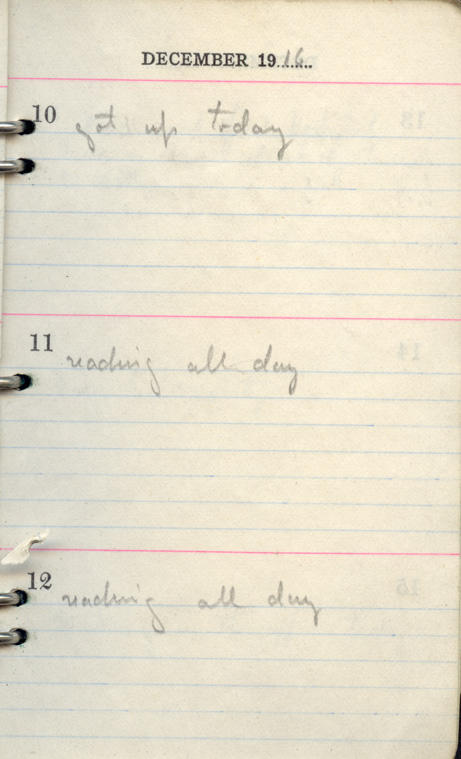 DECEMBER 1916
10 got up today
11 reading all day
12 reading all day